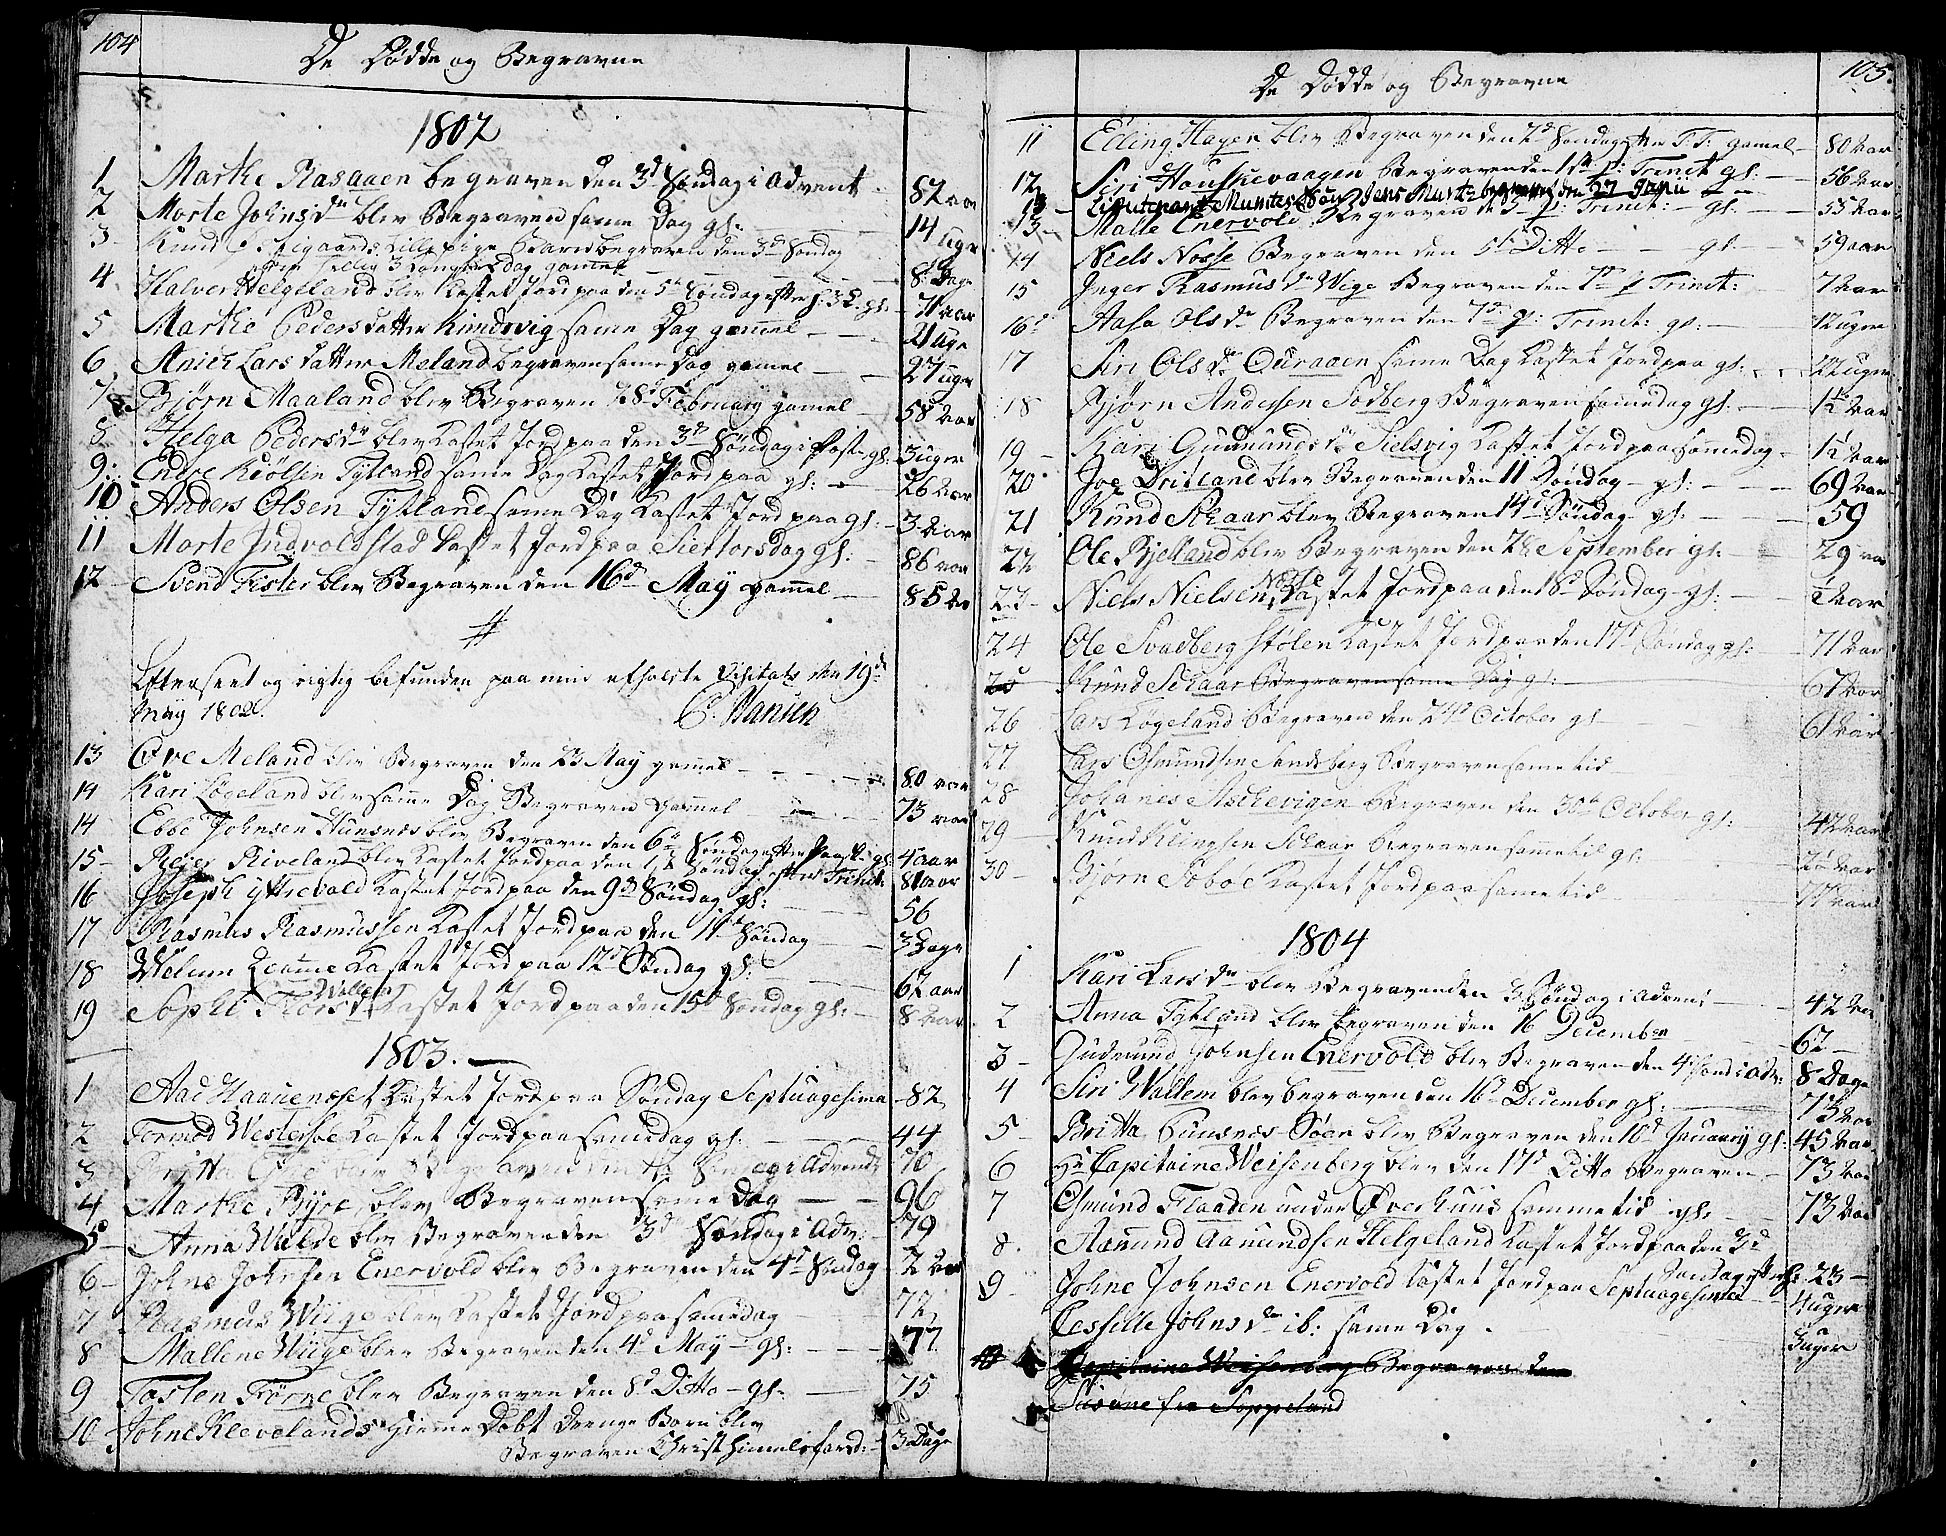 104
De Dødde og Begravne
1802
1 Marthe Rasaaen begraven den 3d Søndag i Advent 82 aar
2 Morte Johnsdr blev Begraven same Dag gl: 14 uger
3 Knud lille pige Barn begraven den 3d Søndag
gammel 8 Dage
4 Halver Helgeland blev Kastet Jord paa den 5te Søndag efter H. 3 K. gl: 71 aar
5 Marthe Pedersdatter Hundsvig same Dag gamel 21 Uge
6 Anich Larsdatter Meland begraven same Dag gamel 27 uger
7 Bjørn Maaland blev Begraven 28d February gamel 58 Aar
8 Helga Pedersdr blev Kastet Jord paa den 3d Søndag i Faste gl: 3 uger
9 Endre Kiølsen Tytland same Dag Kastet Jord paa gl: 26 Aar
10 Anders Olsen Tytland same Dag Kastet Jord paa gl: 3 Aar
11 Morte Indvoldstad Kastet Jord paa Siertorsdag gl: 86 aar
12 Svend Fister blev Begraven den 16d May gamel 85 Aar
#
Efterseet og rigtig befunden paa min afholdte Visitats den 19de
May 1802. P. Hansen
13 Ove Meland blev Begraven den 23 May gamel 80 aar
14 Kari Løgeland blev same Dag Begraven gamel 73 aar
14 Ebbe Johnsen Hunsnæs blev Begraven den 6te Søndag efter Paaske gl: 4 aar
15 Reier Riveland blev Kastet Jord paa den 1ste Søndag efter Trinit: 81 aar
16 Joseph yttrevold Kastet Jord paa den 9d Søndag gl: 56
17 Rasmus Rasmussen Kastet Jord paa den 11te Søndag 3 Dage
18 Welum Kastet Jord paa 12d Søndag gl: 62 aar
Wallem
19 Sophi Thorsdr Kastet Jord paa den 15de Søndag gl: 8 Aar
1803.
1 Aad Haauenæset Kastet Jord paa Søndag Septuagesima 82
2 Tormod Westersøe Kastet Jord paa samedag gl: 44
3 blev Begraven den Søndag i Advendt 70
4 Marthe Byre blev Begraven same Dag 96
5 Anna Wulde blev Begraven den 3d Søndag i Adv: 79
6 Johne Johnsen Enervold blev Begraven den 4d Søndag 2 Aar
7 Rasmus Wiige blev Kastet Jord paa samedag 72
8 Mallene Wiige blev Begraven den 4d May gl: 77
9 Tosten Førne blev Begraven den 8d Ditto gl: 75
10 Johne Klevelands Hieme Døbt Drenge Barn blev
Begraven Christ himelsfard: 3 Dage
105.
De Dødde og Begravne
11 Elling Hagen blev Begraven den 2d Søndag efter T: gamel 80 aar
12 Siri Houskevaagen Begraven den 1ste p: Trinit gl: 56 aar
Lieutenant Munstes Søn Jens Munthe begraven den 27 Janu
13 Malle Enervold Begraven den 3 p: Trinit: gl: 55 aar
14 Niels Nosse Begraven den 5te Ditto gl: 59 aar
15 Inger Rasmusdr Wige Begraven den 7de p Trinit: 2 aar
16 Aasa Olsdr Begraven den 7de p: Trinit: gl: 12 uger
17 Siri Olsdr Ouraaen same Dag Kastet Jord paa gl: 22 uger
18 Bjørn Andersen Sodberg Begraven samedag gl: 1½ Aar
19 Kari Gudmundsdr Sielsvig Kastet Jord paa samedag 1½ Aar
20 Joe Dritland blev Begraven den 11 Søndag gl: 69 Aar
21 Knud Schaar blev Begraven 14d Søndag gl: 59
22 Ole Bjelland blev Begraven den 28 September gl: 29 aar
Nosse
23 Niels Nielsen Kastet Jord paa den 18d Søndag gl: 2 Aar
24 Ole Svadberg Stølen Kastet Jord paa den 17d Søndag gl: 71 Aar
25 Knud Schaar Begraven same Dag gl: 67 Aar
26 Lars Løgeland Begraven den 24d October gl 61 Aar
27 Lars Osmundsen Sandsberg Begraven same tid
28 Johanes Aschevigen Begraven den 30te October gl: 42 Aar
29 Knud Klingsen Schaar Begraven samme tid gl: 2½ Aar
30 Bjørn Sobøe Kastet Jord paa same tid 77 Aar
1804
1 Kari Larsdr blev Begraven den 3 Søndag i Advent 42 Aar
2 Anna Tytland blev begraven den 16 December 62
3 Gudmund Johnsen Enervold blev Begraven den 4d Sønd i Adv: 8 Dage
4 Siri Wallem blev begraven den 16d December gl: 73 Aar
5 Britta Hunsnæs Søen blev Begraven den 10d January gl: 45 Aar
6 Hr Capitaine Weisenberg blev den 17d Ditto Begraven 73 Aar
7 Osmund Flaaden under Øverhuus samme tid gl: 73 Aar
8 Aamund Aamundsen Helgeland Kastet Jord paa den 3d
Søndag efter 23
9 Johne Johnsen Enervold Kastet Jord paa Septuagesima 4 uger
Cessille Johnsdr ib: same Dag. 3 uger
Capitaine Weisenberg Begraven den
Susane fra Soppeland